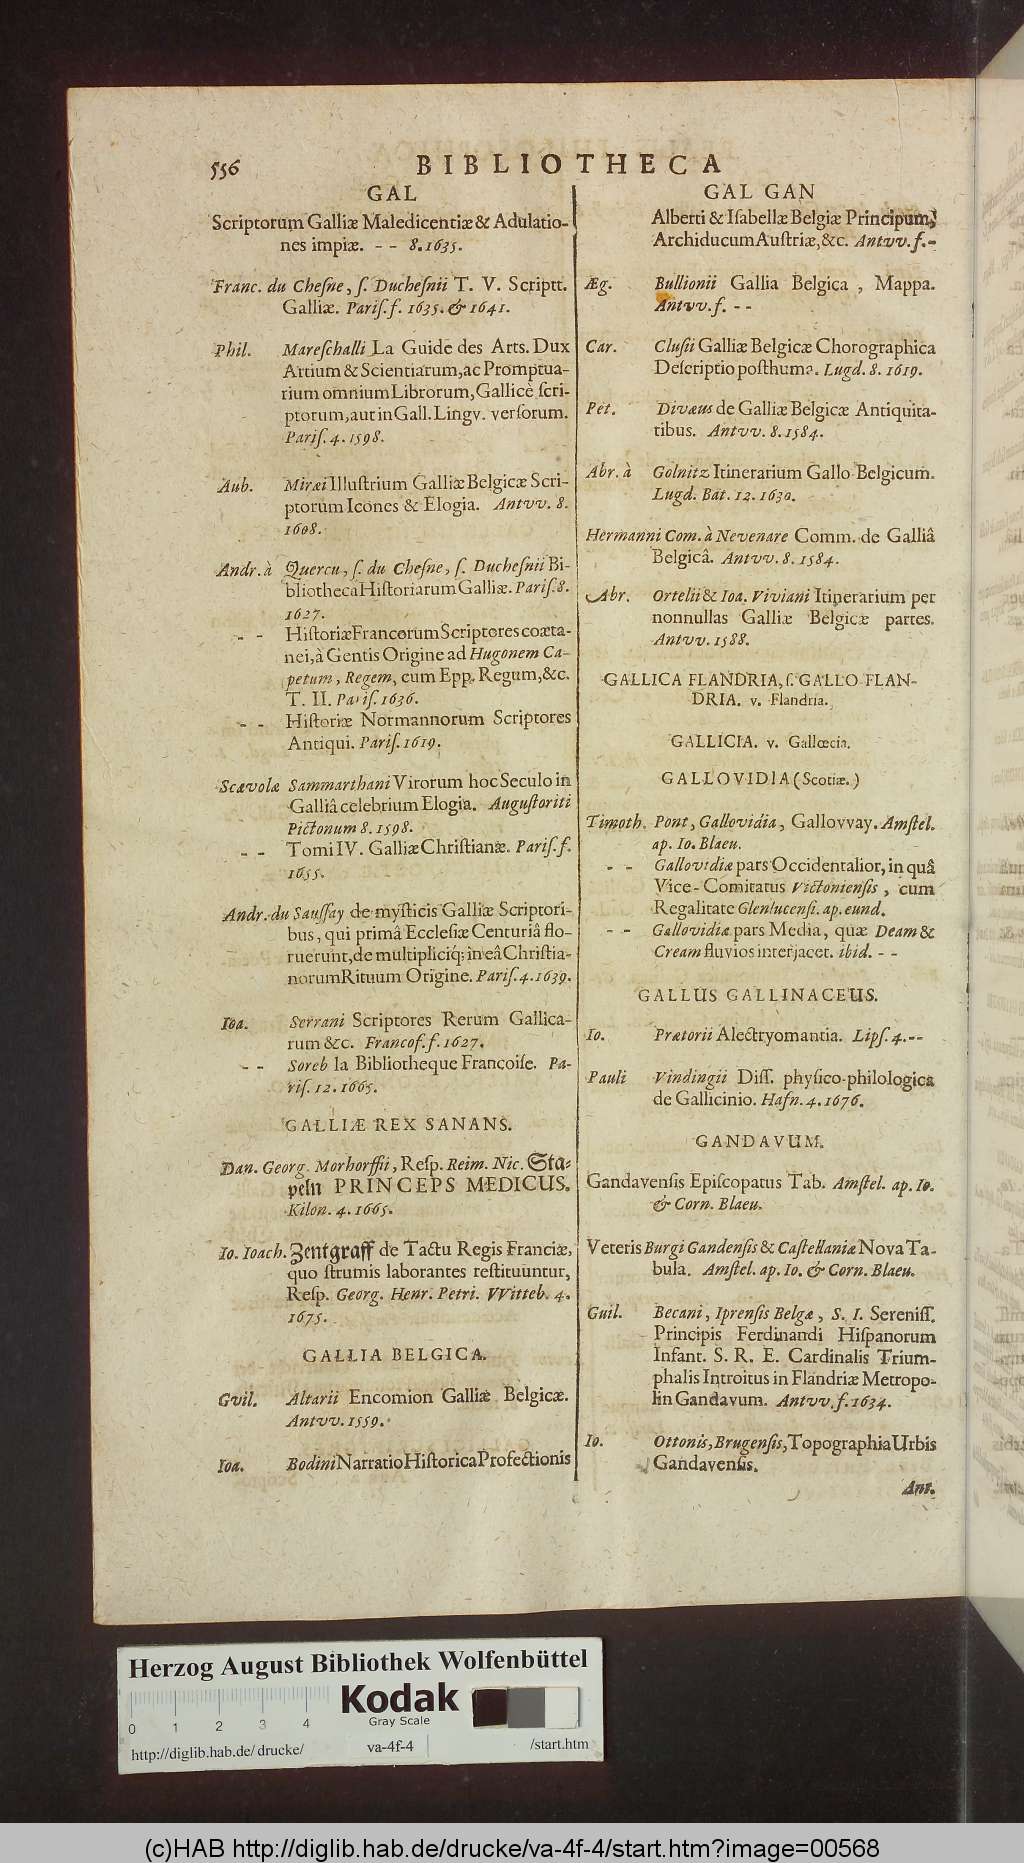 556
BIBLIOTHECA
GAL
Scriptorum Galliæ Maledicentiæ & Adulatio-
nes impiæ. - - 8. 1635.
Franc. du Cheſne, ſ. Ducheſnii T. V. Scriptt.
Galliæ. Pariſ. f. 1635. & 1641.
Phil. Mareſchalli La Guide des Arts. Dux
Artium & Scientiarum, ac Promptua-
rium omnium Librorum, Gallicè ſcri-
ptorum, aut in Gall. Lingv. verſorum.
Pariſ. 4. 1598.
Aub. Miræi Illuſtrium Galliæ Belgicæ Scri-
ptorum Icones & Elogia. Antvv. 8.
1608.
Andr. à Quercu, ſ. du Cheſne, ſ. Ducheſnii Bi-
bliotheca Hiſtoriarum Galliæ. Pariſ. 8.
1627.
- - Hiſtoriæ Francorum Scriptores coæta-
nei, à Gentis Origine ad Hugonem Ca-
petum, Regem, cum Epp. Regum, &c.
T. II. Pariſ. 1636.
- - Hiſtoriæ Normannorum Scriptores
Antiqui. Pariſ. 1619.
Scævolæ Sammarthani Virorum hoc Seculo in
Galliâ celebrium Elogia. Auguſtoriti
Pictonum 8. 1598.
- - Tomi IV. Galliæ Chriſtianæ. Pariſ. f.
1655.
Andr. du Sauſſay de myſticis Galliæ Scriptori-
bus, qui primâ Eccleſiæ Centuriâ flo-
ruerunt, de multipliciq́; in eâ Chriſtia-
norum Rituum Origine. Pariſ. 4. 1639.
Ioa. Serrani Scriptores Rerum Gallica-
rum &c. Francof. f. 1627.
- - Soreb la Bibliotheque Françoiſe. Pa-
riſ. 12. 1665.
GALLIÆ REX SANANS.
Dan. Georg. Morhorffii, Reſp. Reim. Nic. Sta-
peln PRINCEPS MEDICUS.
Kilon. 4. 1665.
Io. Ioach. Zentgraff de Tactu Regis Franciæ,
quo ſtrumis laborantes reſtituuntur,
Reſp. Georg. Henr. Petri. VVitteb. 4.
1675.
GALLIA BELGICA.
Gvil. Altarii Encomion Galliæ Belgicæ.
Antvv. 1559.
Ioa. Bodini Narratio Hiſtorica Profectionis
GAL GAN
Alberti & Iſabellæ Belgiæ Principum,
Archiducum Auſtriæ, &c. Antvv. f. -
Æg. Bullionii Gallia Belgica, Mappa.
Antvv. f. - -
Car. Cluſii Galliæ Belgicæ Chorographica
Deſcriptio poſthuma. Lugd. 8. 1619.
Pet. Divæus de Galliæ Belgicæ Antiquita-
tibus. Antvv. 8. 1584.
Abr. à Golnitz Itinerarium Gallo-Belgicum.
Lugd. Bat. 12. 1630.
Hermanni Com. à Nevenare Comm. de Galliâ
Belgicâ. Antvv. 8. 1584.
Abr. Ortelii & Ioa. Viviani Itinerarium per
nonnullas Galliæ Belgicæ partes.
Antvv. 1588.
GALLICA FLANDRIA, ſ. GALLO FLAN-
DRIA. v. Flandria.
GALLICIA. v. Gallœcia.
GALLOVIDIA (Scotiæ.)
Timoth. Pont, Gallovidia, Gallovvay. Amſtel.
ap. Io. Blaeu.
- - Gallovidiæ pars Occidentalior, in quâ
Vice-Comitatus Victonienſis, cum
Regalitate Glenlucenſi. ap. eund.
- - Gallovidiæ pars Media, quæ Deam &
Cream fluvios interjacet. ibid. - -
GALLUS GALLINACEUS.
Io. Prætorii Alectryomantia. Lipſ. 4. - -
Pauli Vindingii Diſſ. phyſico-philologica
de Gallicinio. Hafn. 4. 1676.
GANDAVUM.
Gandavenſis Epiſcopatus Tab. Amſtel. ap. Io.
& Corn. Blaeu.
Veteris Burgi Gandenſis & Caſtellaniæ Nova Ta-
bula. Amſtel. ap. Io. & Corn. Blaeu.
Guil. Becani, Iprenſis Belgæ, S. I. Sereniſſ.
Principis Ferdinandi Hiſpanorum
Infant. S. R. E. Cardinalis Trium-
phalis Introitus in Flandriæ Metropo-
lin Gandavum. Antvv. f. 1634.
Io. Ottonis, Brugenſis, Topographia Urbis
Gandavenſis.
Ant.
Herzog August Bibliothek Wolfenbüttel
Kodak
Gray Scale
0 1 2 3 4
http://diglib.hab.de/drucke/ va-4f-4 /start.htm
(c)HAB http://diglib.hab.de/drucke/va-4f-4/start.htm?image=00568